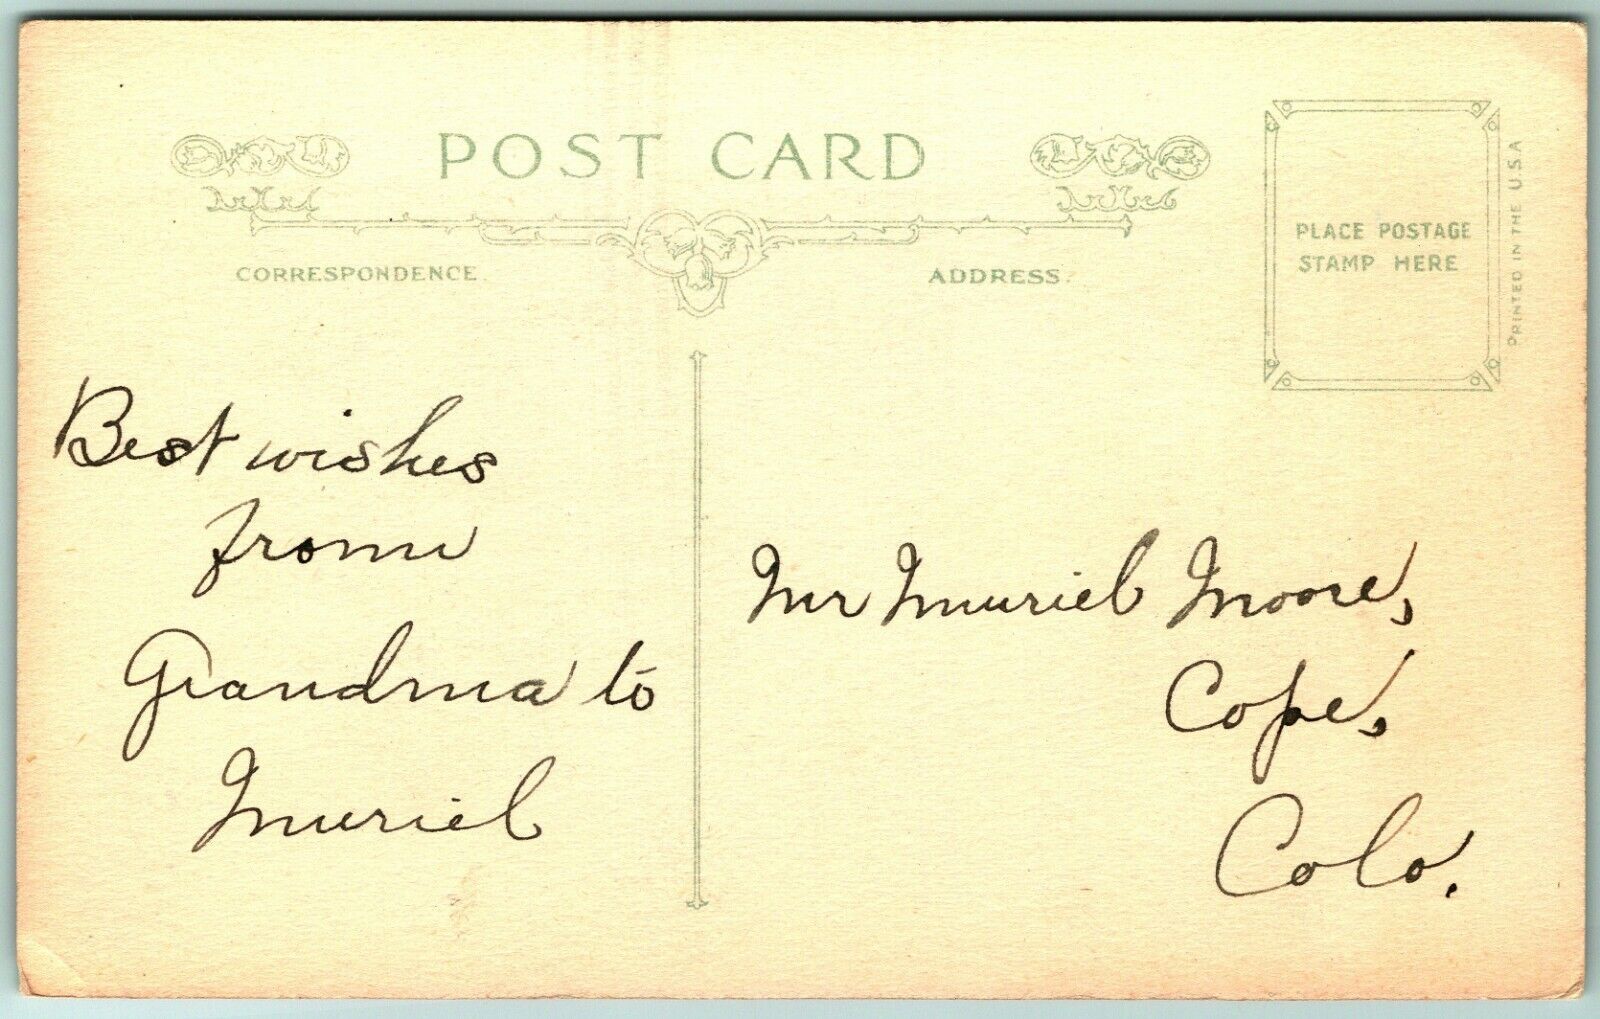 POST CARD
CORRESPONDENCE.
ADDRESS.
PLACE POSTAGE
STAMP HERE
PRINTED IN THE U.S.A
Best wishes
from
Grandma to
Muriel
Mr Muriel Moore,
Cope,
Colo.